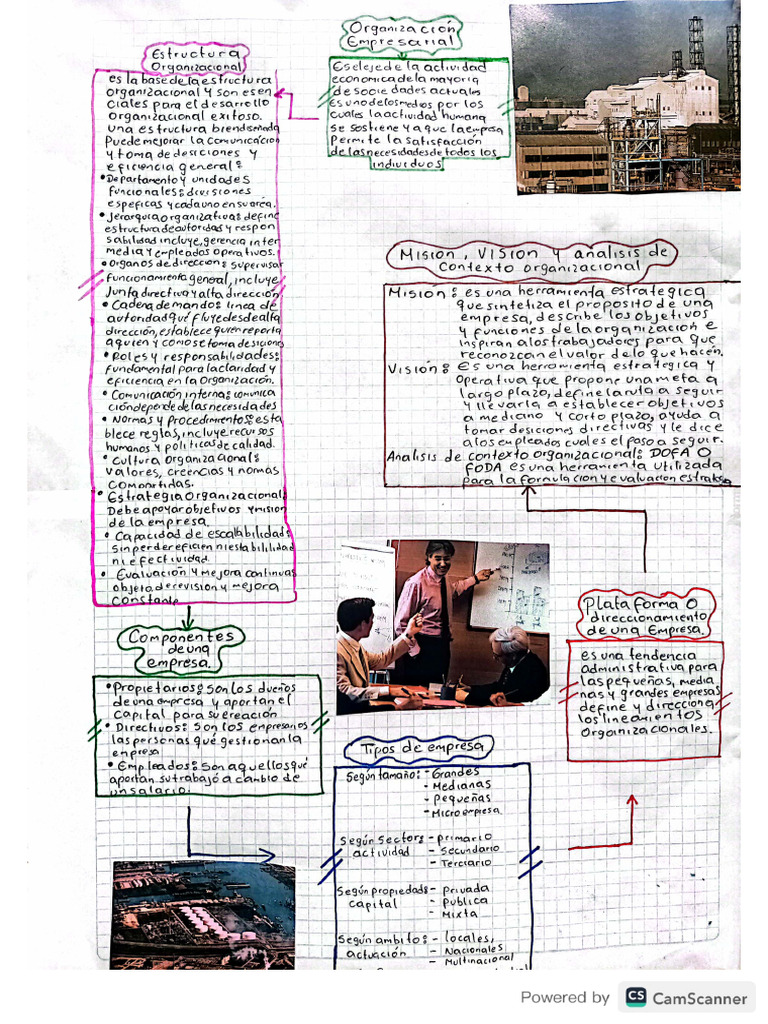 Organización
Empresarial
Es el eje de la actividad
economica de la mayoria
de sociedades actuales
es uno de los medios por los
cuales la actividad humana
se sostiene y a que la empresa
Permite la satisfacción
de las necesidades de todos los
individuos
Estructura
Organizacional
es la base de la estructura
organizacional y son esen
ciales para el desarrollo
organizacional exitoso.
una estructura bien diseñada
Puede mejorar la comunicación
y toma de desiciones y
eficiencia general:
• Departamento y unidades
funcionales: divisiones
espeficas y cada uno en su area.
• Jerarquia organizativa: define
estructura de autoridad y respon
sabilidad incluye, gerencia inter
media y empleados operativos.
• Organos de dirección: supervisar
funcionamiento general, incluye
Junta directiva y alta dirección
• Cadena de mando: linea de
autoridad qué fluye desde alta
dirección, establece quien reporta
a quien y como se toma desiciones
• Roles y responsabilidades:
fundamental para la claridad y
eficiencia en la organización.
• Comunicación interna: comunica
ción depende de las necesidades
• Normas y Procedimientos: esta
blece reglas, incluye recursos
humanos y politicas de calidad.
• Cultura organizacional:
valores, creencias y normas
compartidas.
• Estrategia organizacional:
Debe apoyar objetivos y mision
de la empresa.
• Capacidad de escalabilidad:
sin perder eficien ni estabilidad
ni efectividad.
• Evaluación y mejora continua:
objeto de revision y mejora
constante
Mision, Vision y analisis de
contexto organizacional
Mision: es una herramienta estrategica
que sintetiza el proposito de una
empresa, describe los objetivos
y funciones de la organización e
inspiran a los trabajadores para que
reconozcan el valor de lo que hacén.
Visión: Es una herramienta estrategica y
operativa que propone una meta a
largo plazo, define la ruta a seguir
y llevarla a establecer objetivos
a mediano y corto plazo, ayuda a
tomar desiciones directivas y le dice
a los empleados cuales el paso a seguir.
Analisis de contexto organizacional: DOFA O
FODA es una herramienta utilizada
para la formulacion y evaluacion estrateg
Componentes
de una
empresa.
• Propietarios: son los dueños
de una empresa y aportan el
capital para su creación
• Directivos: son los empresarios
las personas qué gestionan la
empresa
• Empleados: son aquellos qué
aportan su trabajó a cambio de
un salario.
Tipos de empresa
Según tamaño: - Grandes
- Medianas
- Pequeñas
- Micro empresa
Según sector: - primario
actividad - Secundario
- Terciario
Según propiedad: - Privada
capital - Publica
- Mixta
Según ambito: - locales,
actuación - Nacionales
- Multinacional
Plataforma O
direccionamiento
de una Empresa.
es una tendencia
administrativa para
las pequeñas, media
nas y grandes empresas
define y direcciona
los lineamientos
Organizacionales.
Powered by CS CamScanner